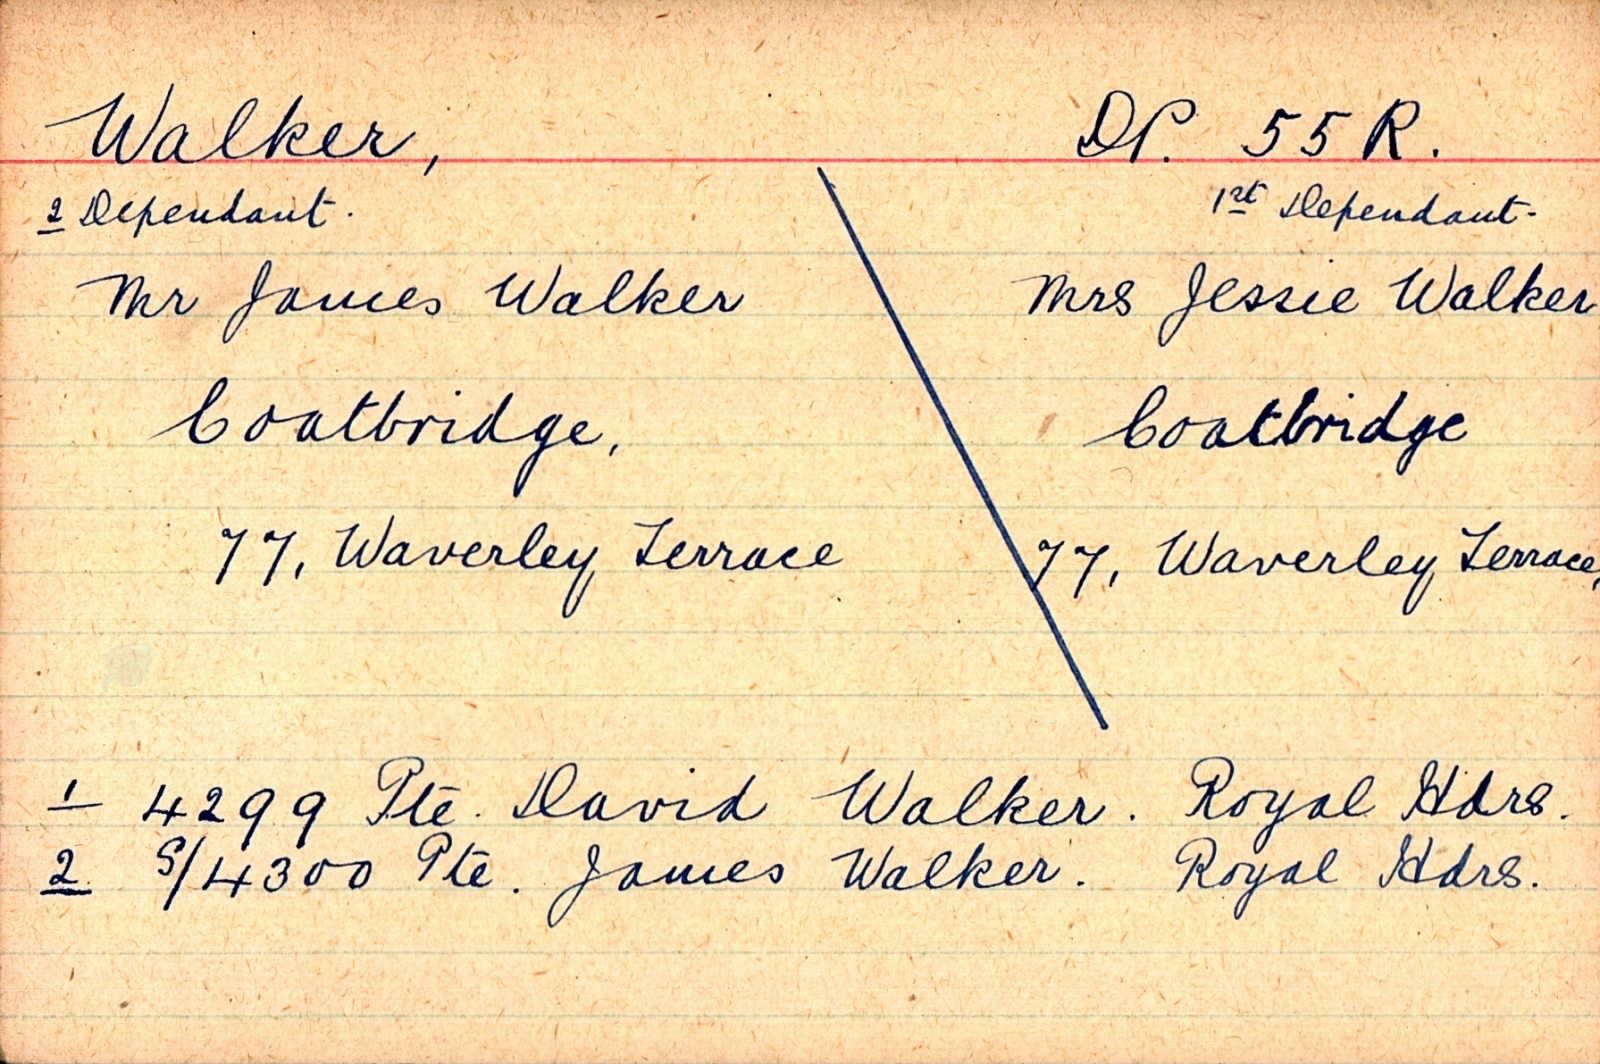 Walker, DP. 55 R.
2 Dependant.
1st Dependant.
Mr James Walker
Mrs Jessie Walker
Coatbridge,
Coatbridge
77, Waverley Terrace
77, Waverley Terrace,
1 4299 Pte. David Walker. Royal Hdrs.
2 S/4300 Pte. James Walker. Royal Hdrs.